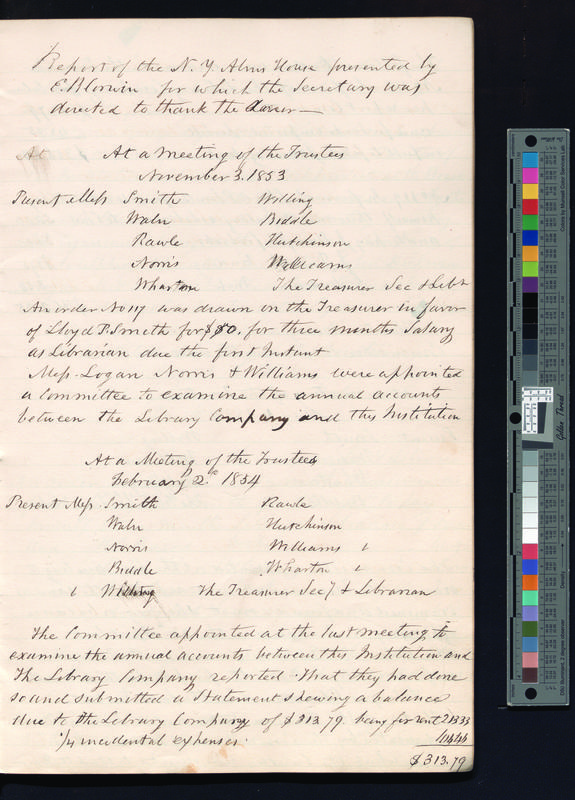 Report of the N. Y. Alms House presented by
E. B. Corwin for which the Secretary was
directed to thank the
At At a meeting of the Trustees
November 3. 1853
Present Mess Smith Willing
Waln Biddle
Rawle Hutchinson
Norris Williams
Wharton The Treasurer Sec & Libn
An order No 117 was drawn on the Treasurer in favor
of Lloyd P. Smith for $80, for three months Salary
as Librarian due the first Instant
Mess. Logan Norris & Williams were appointed
a Committee to examine the annual accounts
between the Library Company and this Institution
At a Meeting of the Trustees
February 2. 1854
Present Mess. Smith Rawle
Waln Hutchinson
Norris Williams
Biddle Wharton
Willing The Treasurer Secy & Librarian
The Committee appointed at the last meeting to
examine the annual accounts between this Institution and
The Library Company reported That they had done
so and submitted a Statement shewing a balance
due to the Library Company of $313.79. being for rent 213 33
1/4 incidental expenses.
$313.79